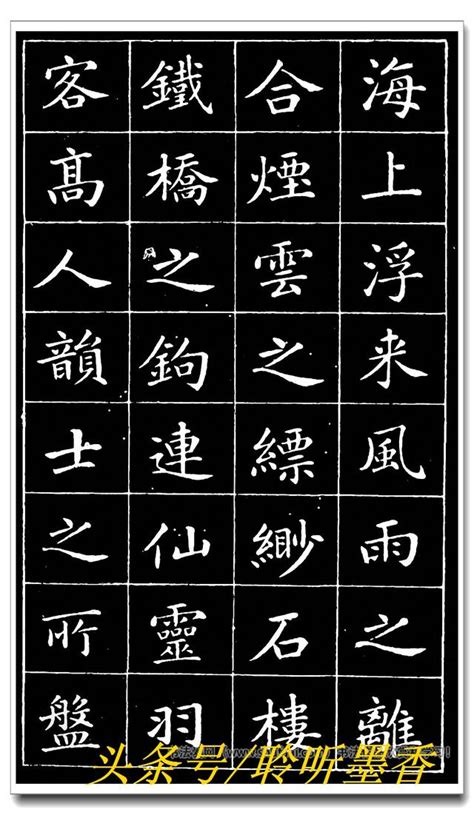 海上浮来風雨之離
合煙雲之縹緲石樓
鐵橋之鉤連仙靈羽
客髙人韻士之所盤
头条号/聆听墨香